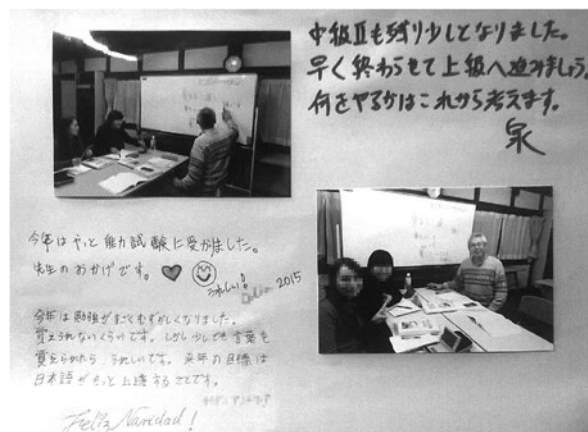 中級Ⅱも残り少しとなりました。
早く終わらせて上級へ進みましょう。
何をやるかはこれから考えます。
泉
今年はやっと能力試験に受かりました。
先生のおかげです。
うれしい!
2015
今年は勉強がすごくむずかしくなりました。
覚えられないくらいです。しかし少しでも言葉を
覚えられたら、うれしいです。来年の目標は
日本語がもっと上達することです。
Feliz Navidad!